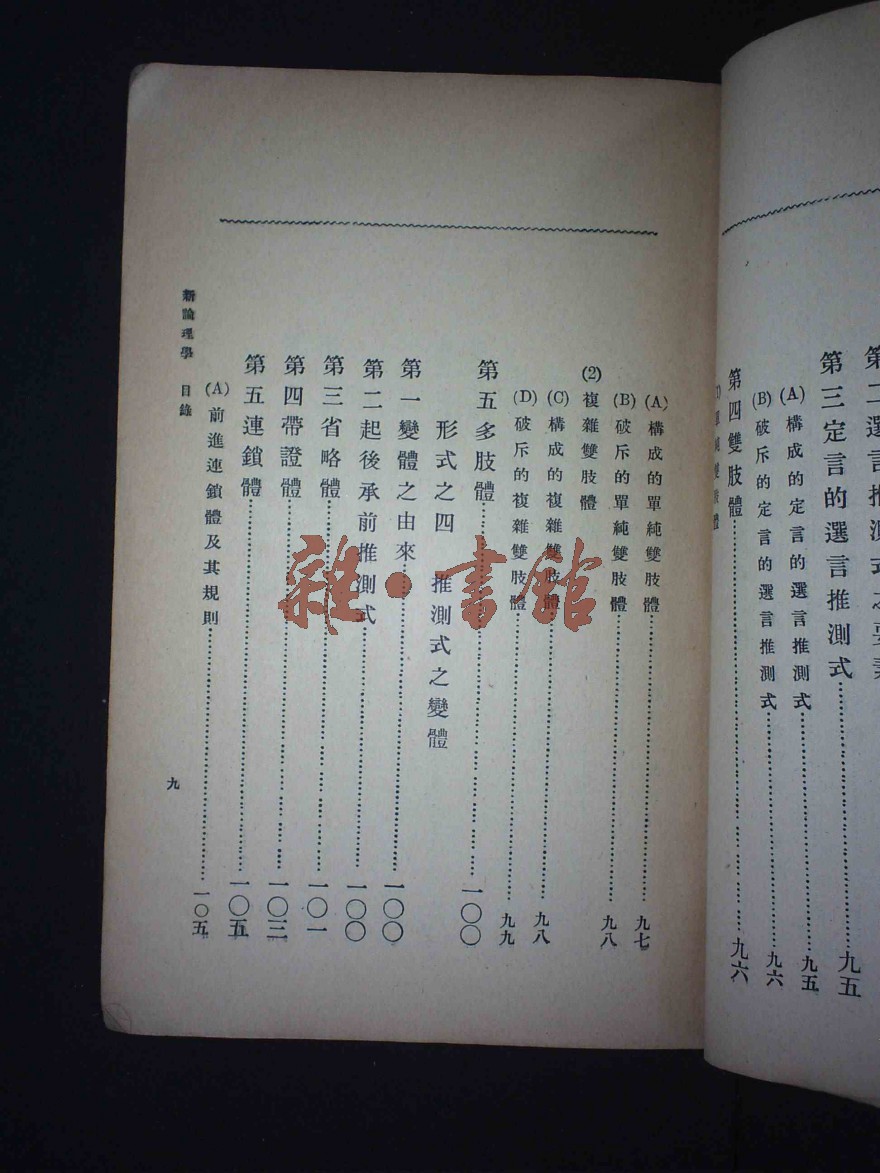 第二選言推測式之要素
第三定言的選言推測式……九五
(A)構成的定言的選言推測式……九五
(B)破斥的定言的選言推測式……九六
第四雙肢體……九六
(A)構成的單純雙肢體……九七
(B)破斥的單純雙肢體……九八
(2)複雜雙肢體
(C)構成的複雜雙肢體……九八
(D)破斥的複雜雙肢體……九九
第五多肢體……一〇〇
形式之四 推測式之變體
第一變體之由來……一〇〇
第二起後承前推測式……一〇〇
第三省略體……一〇一
第四帶證體……一〇三
第五連鎖體……一〇五
(A)前進連鎖體及其規則……一〇五
新論理學 目錄
九
雜·書館